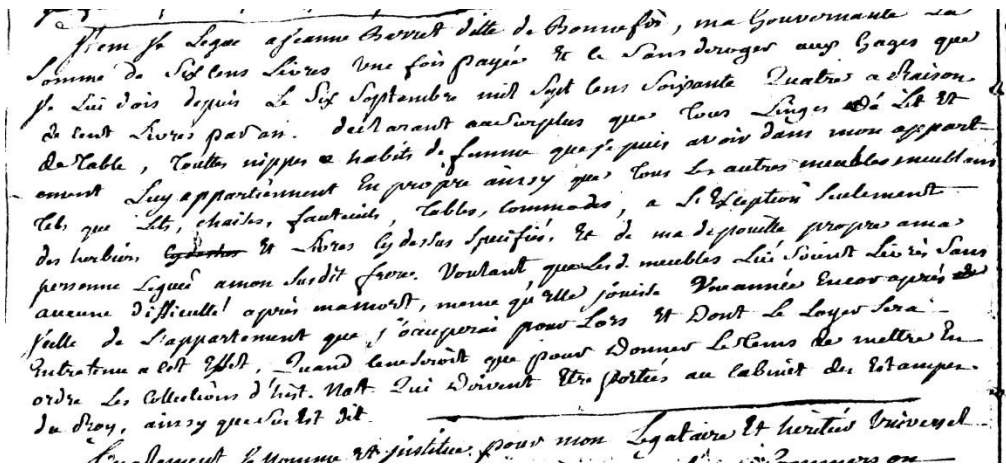 Item Je Legue a Jeanne Barret ditte de Bonnefoi, ma Gouvernante La
Somme de Six Cens Livres Une fois payée Et ce Sans deroger aux Gages que
Je Lui dois depuis Le Six Septembre mil Sept Cens Soixante Quatre a Raison
de Cent Livres par an. declarant au Surplus que Tous Linges de Lit Et
de Table, Touttes nippes & habits de femme que je puis avoir dans mon appart-
ement Luy appartiennent En propre ainsy que Tous Les autres meubles meublans
Tels que Lits, chaises, fauteuils, Tables, Commodes, a L'Exception Seulement
des herbiers Et Livres Cy dessus Specifiés, Et de ma depouille propre a ma
personne Leguée a mon Susdit frere. Voulant que Les d. meubles Lui Soient Livrés Sans
aucune difficulté après ma mort, meme qu'Elle jouisse Une année Encor après
de L'appartement que j'occuperai pour Lors Et Dont Le Loyer Sera
Entretenu a Cet Effet, Quand Ce ne Seroit que pour Donner Le Tems de mettre En
ordre Les Collections d'hist. Nat. Qui Doivent Etre portées au Cabinet des Estampes
du Roy, ainsy que Sus Est dit.
Je nomme Et institue pour mon Legataire Et heritier Universel
Commerson